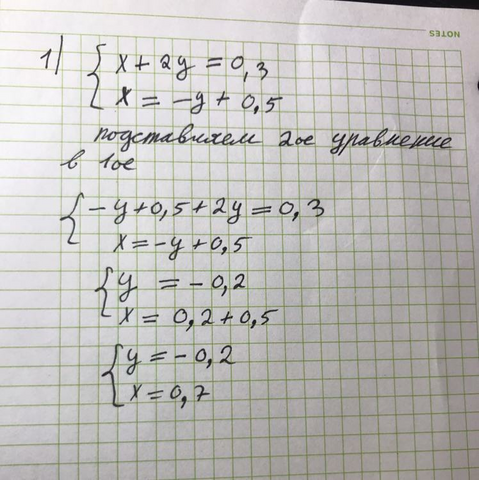 NOTES
1) { x + 2y = 0,3
x = -y + 0,5
подставляем 2ое уравнение
в 1ое
{ -y + 0,5 + 2y = 0,3
x = -y + 0,5
{ y = -0,2
x = 0,2 + 0,5
{ y = -0,2
x = 0,7